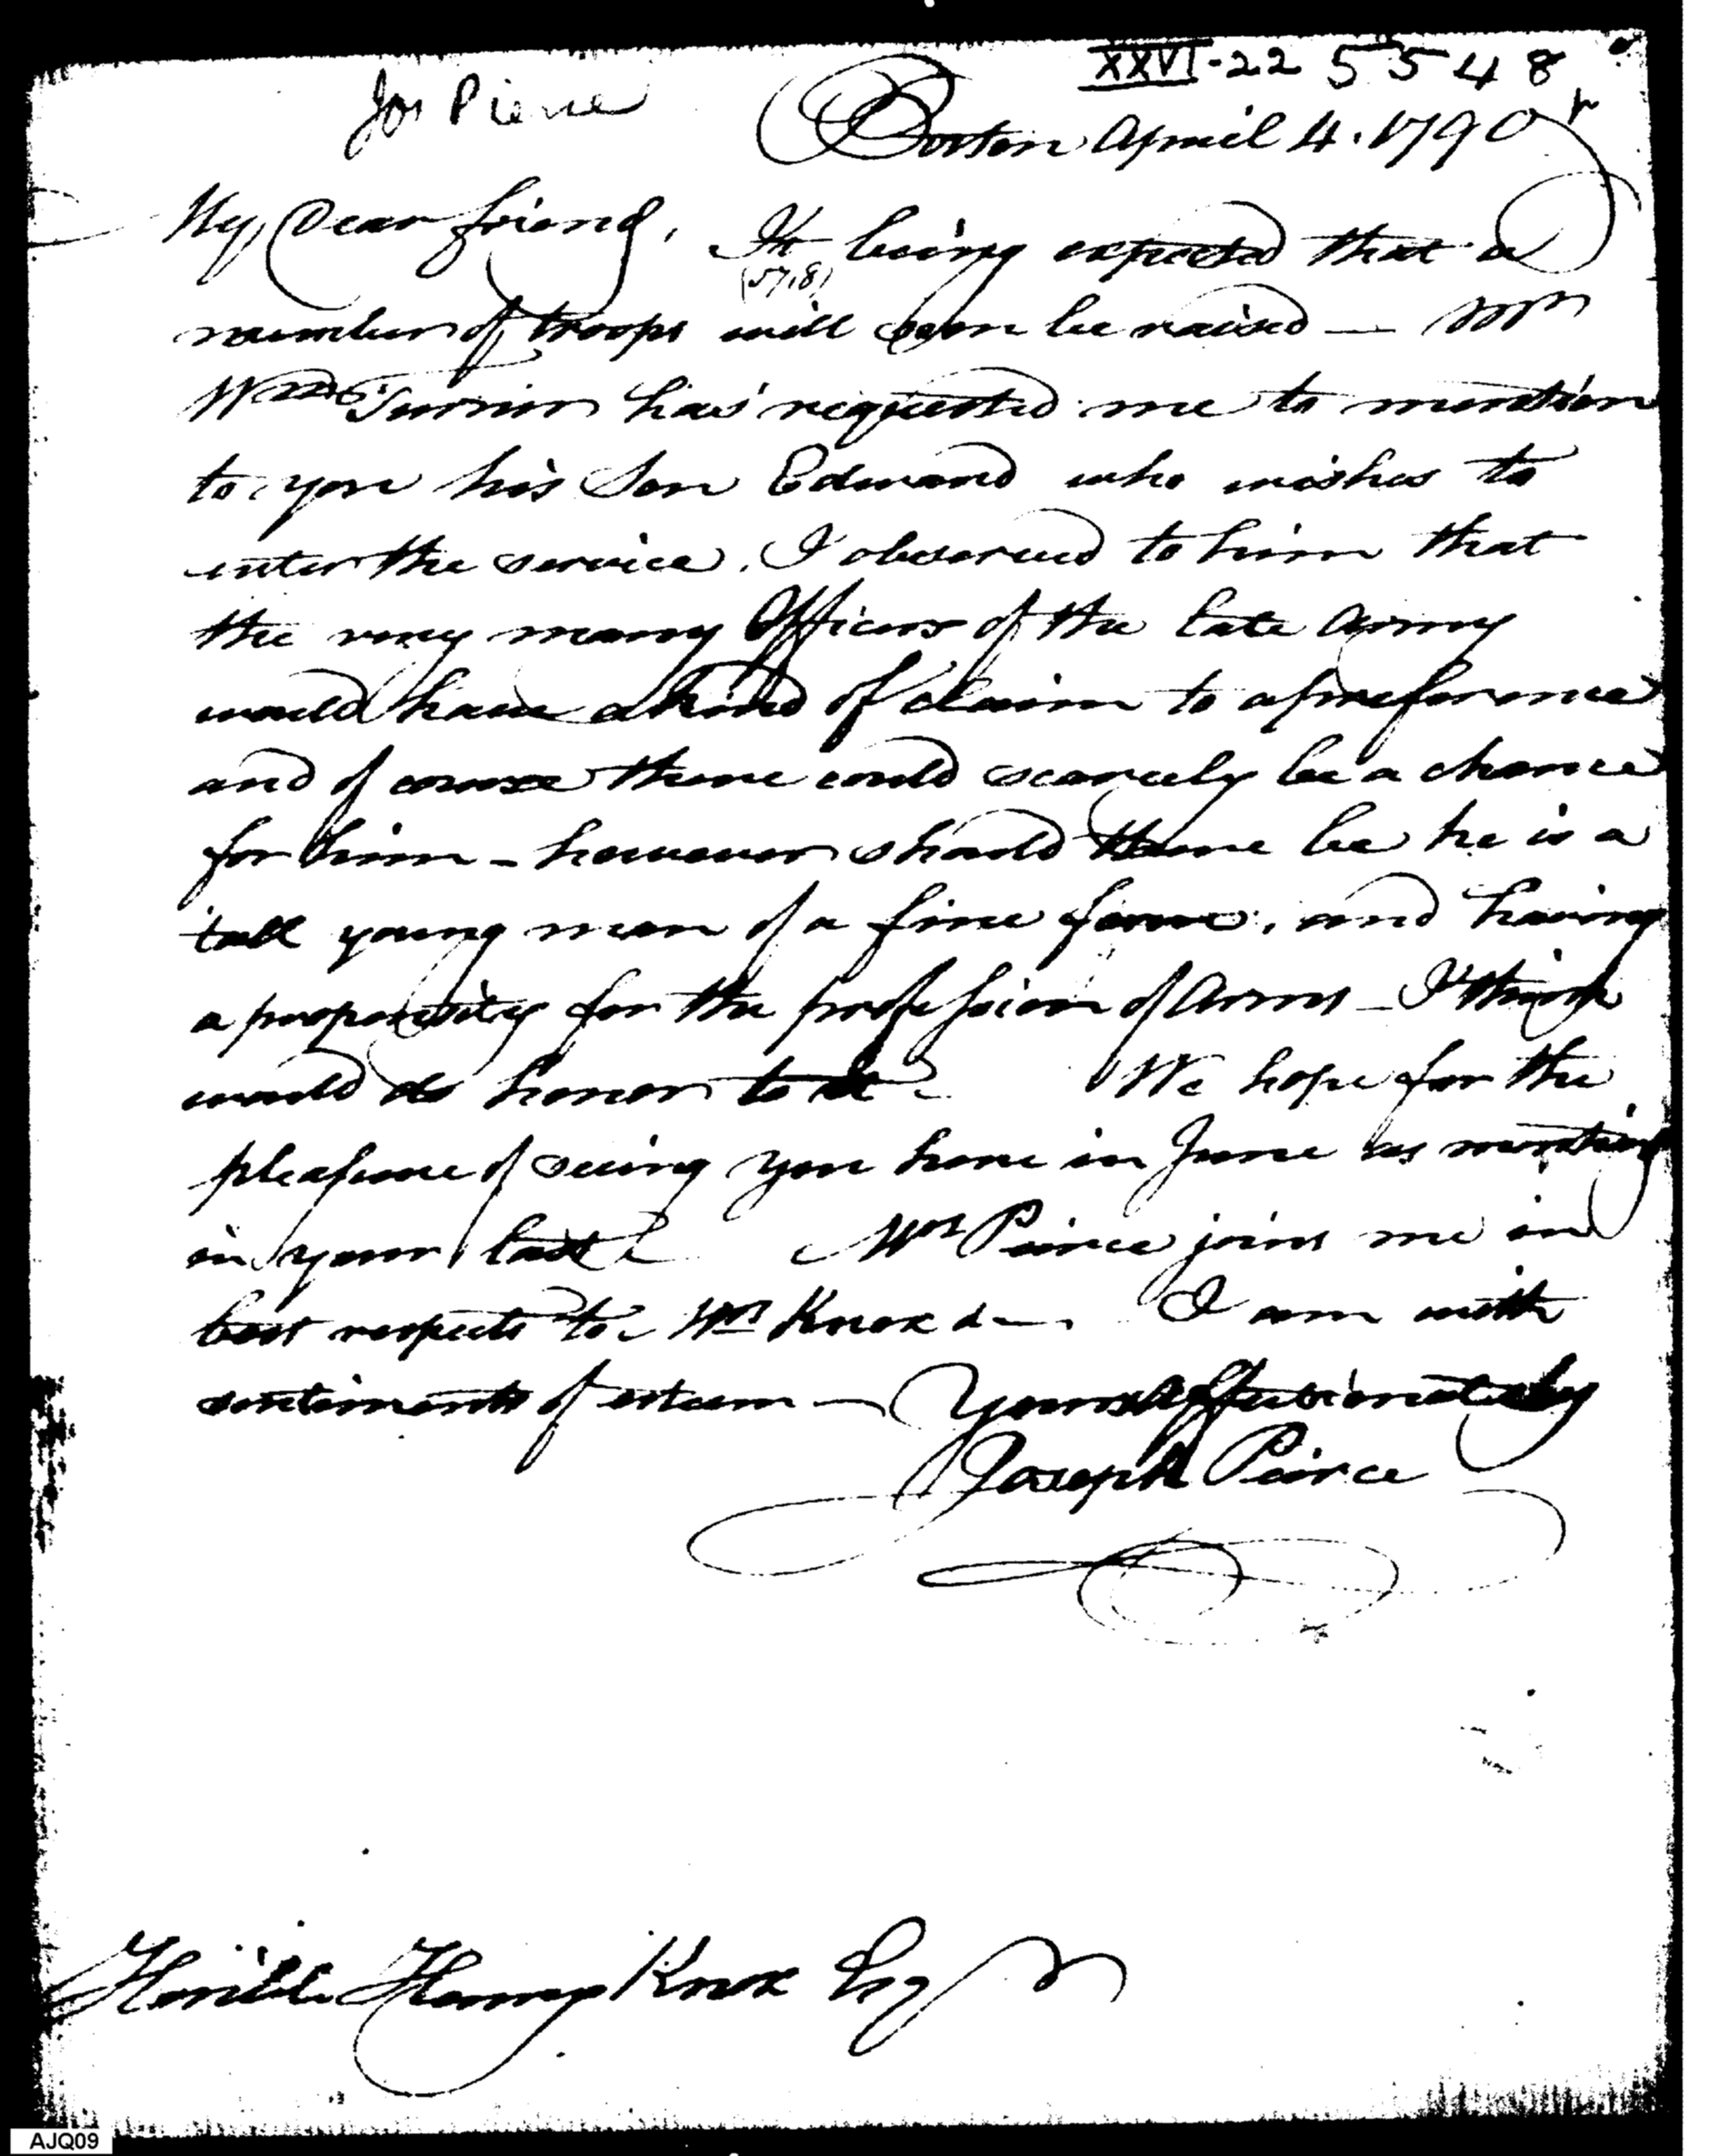 XXVI-22 5548
Jos Pierce
Boston April 4. 1790
My Dear friend, It being expected that a
(5718)
number of troops will soon be raised — Mr
Wm Turner has requested me to mention
to you his Son Edward who wishes to
enter the service. I observed to him that
the very many Officers of the late Army
would have a kind of claim to a preference
and of course there could scarcely be a chance
for him - however should there be he is a
tall young man of a fine form, and having
a propensity for the profession of Arms - I think
would do honor to it - We hope for the
pleasure of seeing you here in June as mention'd
in your last - Mrs Peirce joins me in
best respects to Mrs Knox & — I am with
sentiments of esteem — Yours Affectionately
Joseph Peirce
Honble Henry Knox Esqr
AJQ09